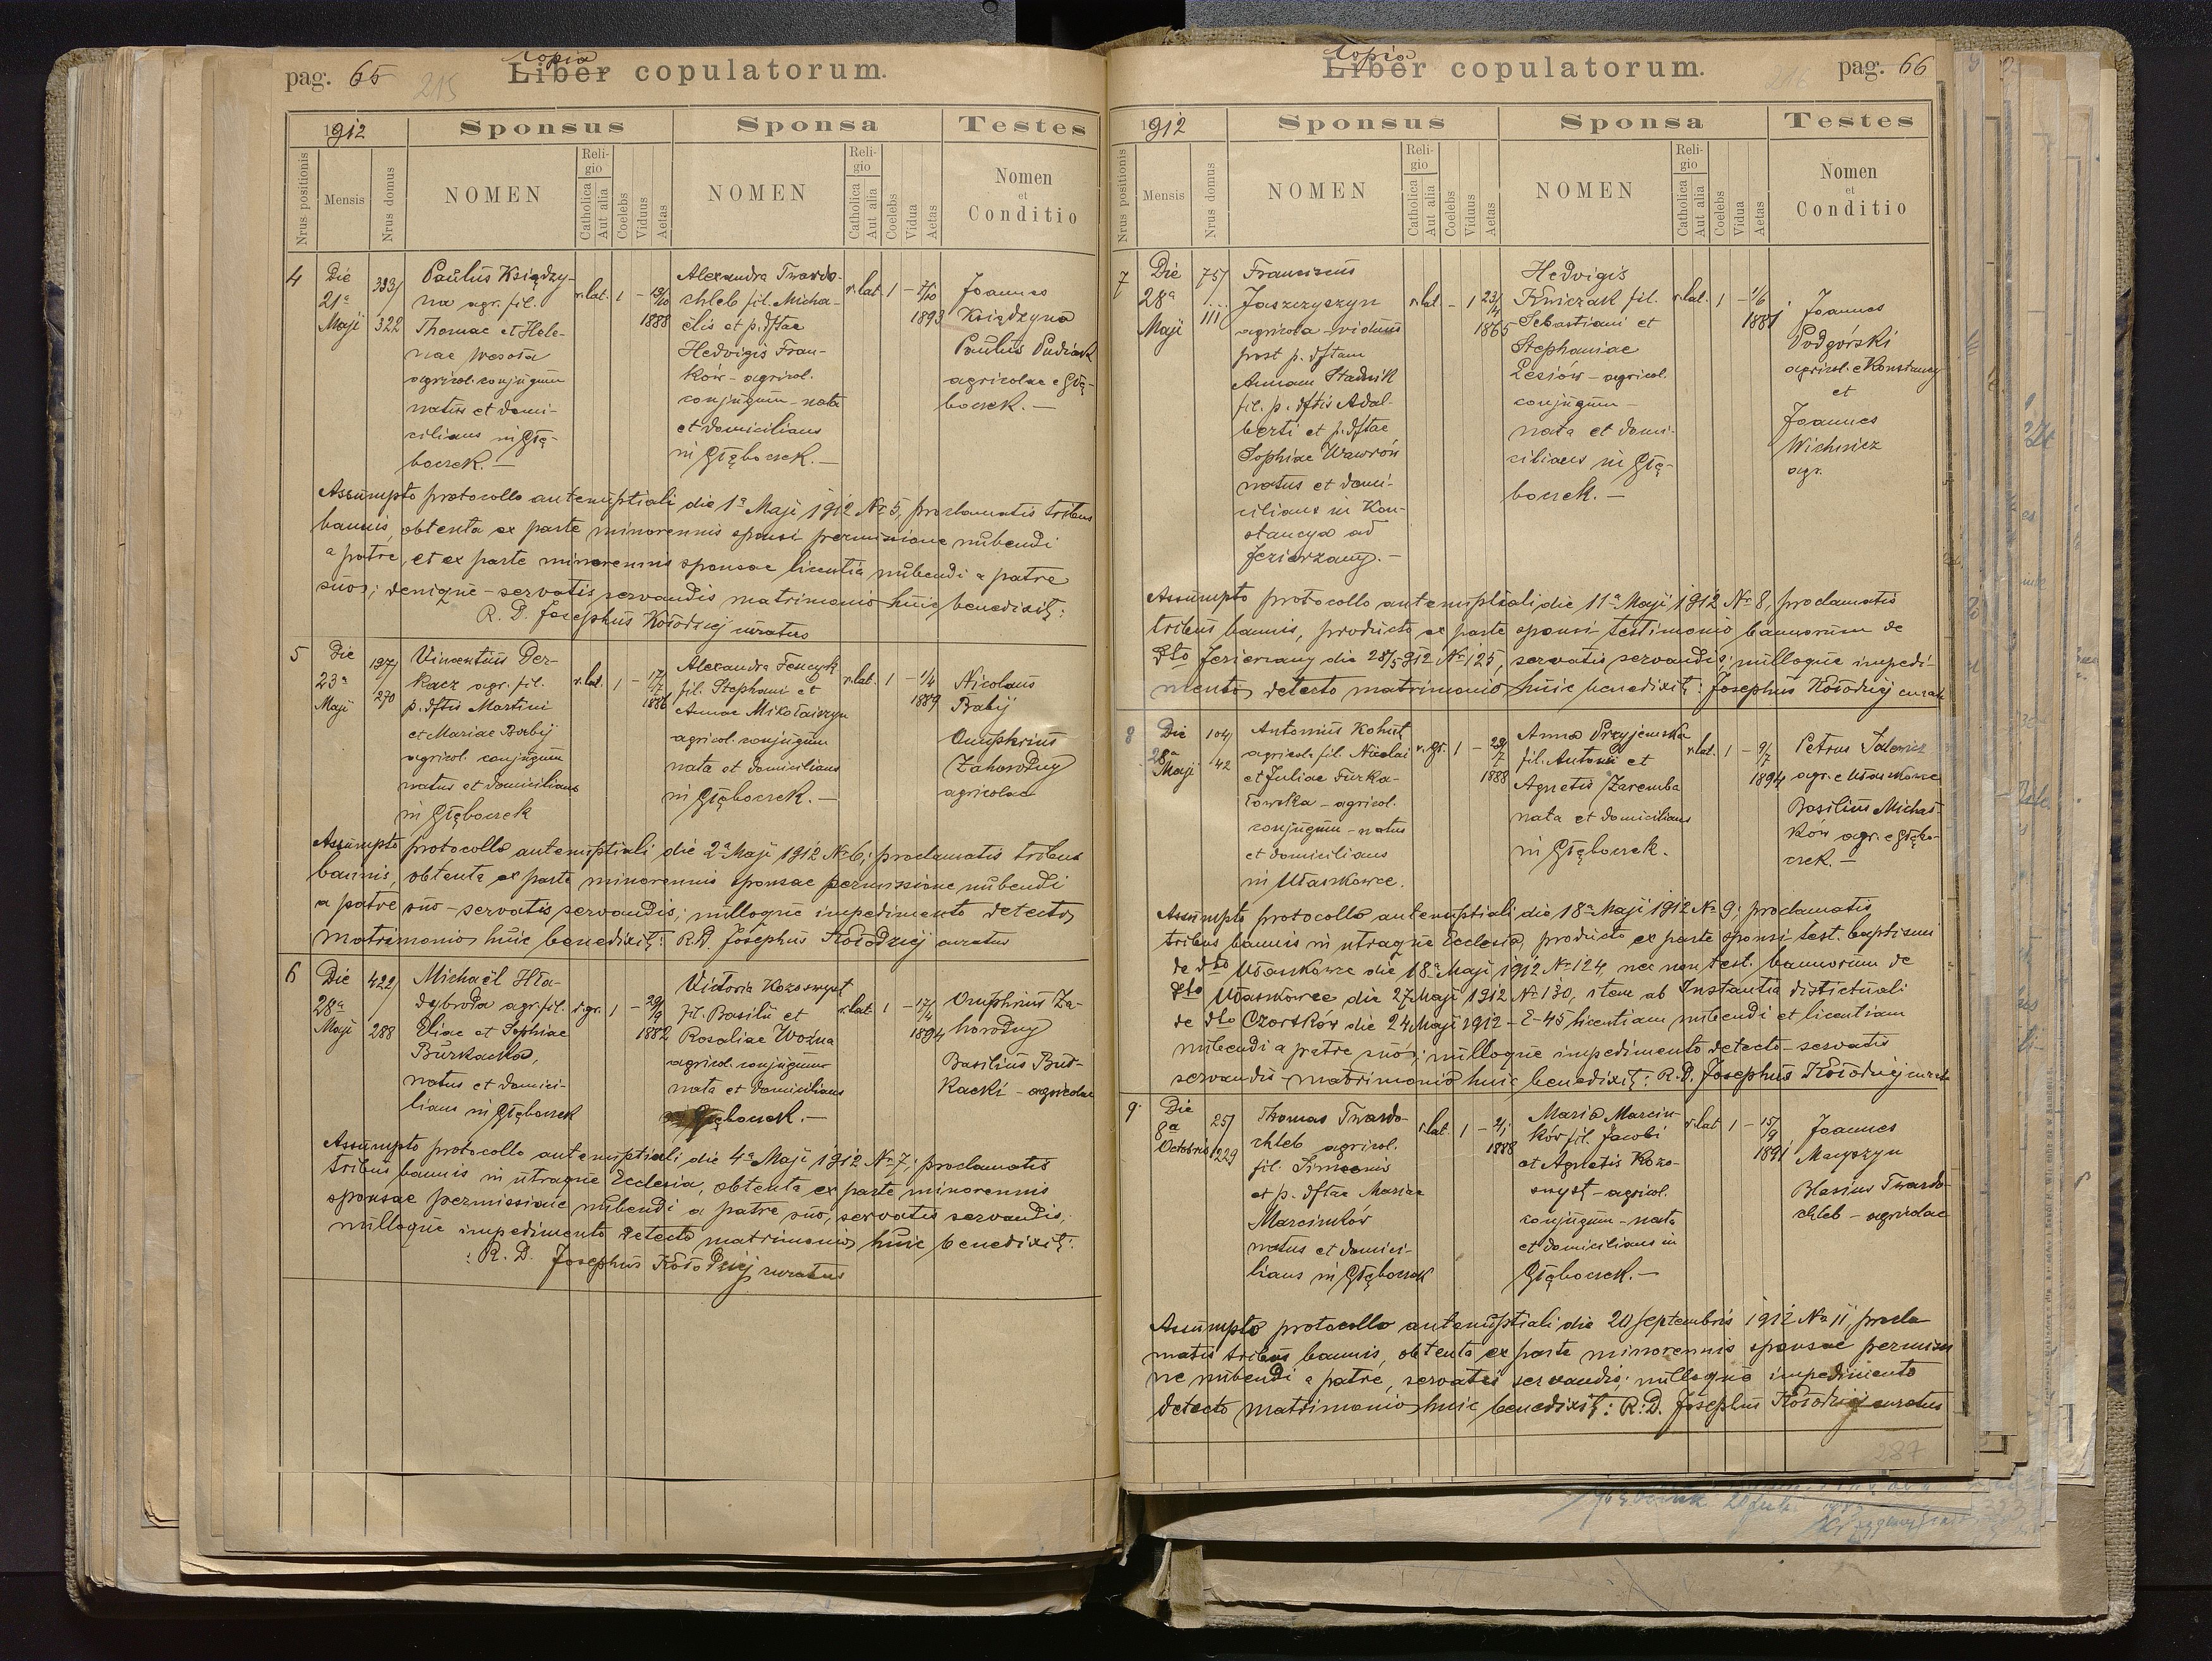 pag. 65
215
Copia
Liber copulatorum.
1912
Sponsus
Sponsa
Testes
Nrus positionis
Mensis
Nrus domus
NOMEN
Religio
Catholica
Aut alia
Coelebs
Viduus
Aetas
NOMEN
Religio
Catholica
Aut alia
Coelebs
Vidua
Aetas
Nomen
et
Conditio
4
Die
21a
Maji
393/
322
Paulus Księdzy-
na agr. fil.
Thomae et Hele-
nae Wesoła
agricol. conjugum
natus et domi-
cilians in Głę-
boczek. —
r. lat.
1
–
13/10
1888
Alexandra Twardo-
chleb fil. Micha-
ëlis et p. dftae
Hedvigis Fran-
ków – agricol.
conjugum – nata
et domicilians
in Głęboczek. —
r. lat.
1
–
7/10
1893
Joannes
Księdzyna
Paulus Pudiack
agricolae e Głę-
boczek. —
Assumpto protocollo antenuptiali die 1a Maji 1912 No 5, proclamatis tribus
bannis, obtenta ex parte minorennis sponsi permissione nubendi
a patre, et ex parte minorennis sponsae licentia nubendi a patre
suo; denique – servatis servandis matrimonio huic benedixit:
R. D. Josephus Kołodziej curatus
5
Die
23a
Maji
197/
270
Vincentius Der-
kacz agr. fil.
p. dftis Martini
et Mariae Babij
agricol. conjugum
natus et domicilians
in Głęboczek
r. lat.
1
–
17/7
1886
Alexandra Fenczyk
fil. Stephani et
Annae Mikołaiszyn
agricol. conjugum
nata et domicilians
in Głęboczek. —
r. lat.
1
–
1/4
1889
Nicolaus
Babij
Onuphrius
Zahorodny
agricolae
Assumpto protocollo antenuptiali die 2a Maji 1912 No 6; proclamatis tribus
bannis, obtenta ex parte minorennis sponsae permissione nubendi
a patre suo – servatis servandis; nulloque impedimento detecto,
matrimonio huic benedixit: R.D. Josephus Kołodziej curatus
6
Die
28a
Maji
422/
288
Michaël Hła-
dybroda agr. fil.
Eliae et Sophiae
Burkacka,
natus et domici-
lians in Głęboczek
r. gr.
1
–
29/9
1882
Victoria Kozoswyst
fil. Basilii et
Rosaliae Woźna
agricol. conjugum
nata et domicilians
Głęboczek. —
r. lat.
1
–
17/4
1894
Onuphrius Za-
horodny
Basilius Bud-
kacki – agricolae
Assumpto protocollo antenuptiali die 4a Maji 1912 No 7; proclamatis
tribus bannis in utraque Ecclesia, obtenta ex parte minorennis
sponsae permissione nubendi a patre suo, servatis servandis,
nulloque impedimento detecto matrimonio huic benedixit:
: R. D. Josephus Kołodziej curatus
Copia
Liber copulatorum.
216
pag. 66
1912
Sponsus
Sponsa
Testes
Nrus positionis
Mensis
Nrus domus
NOMEN
Religio
Catholica
Aut alia
Coelebs
Viduus
Aetas
NOMEN
Religio
Catholica
Aut alia
Coelebs
Vidua
Aetas
Nomen
et
Conditio
7
Die
28a
Maji
75/
111
Franciscus
Jaszczyszyn
agricola – viduus
post p. dftam
Annam Stadnik
fil. p. dftis Adal-
berti et p. dftae
Sophiae Wawróń
natus et domi-
cilians in Kon-
stancya ad
Jezierzany. –
r. lat.
–
1
23/4
1865
Hedvigis
Kmiczak fil.
Sebastiani et
Stephaniae
Lesiów – agricol.
conjugum –
nata et domi-
cilians in Głę-
boczek. —
r. lat.
1
–
1/6
1881
Joannes
Podgórski
agricol. e Konstancy
et
Joannes
Wichnicz
agr.
Assumpto protocollo antenuptiali die 11a Maji 1912 No 8, proclamatis
tribus bannis, producto ex parte sponsi testimonio bannorum de
dto Jezierzany die 28/5 912 No 125, servatis servandis; nulloque impedi-
mento detecto matrimonio huic benedixit: Josephus Kołodziej curatus
8
Die
28a
Maji
104/
42
Antonius Kohut
agricola fil. Nicolai
et Juliae Turka-
łowska – agricol.
conjugum – natus
et domicilians
in Ułaszkowce.
r. gr.
1
–
29/7
1888
Anna Przyjemska
fil. Antonii et
Agnetis Zaremba
nata et domicilians
in Głęboczek.
r. lat.
1
–
9/7
1894
Petrus
agr. e Ułaszkowce
Basilius Michał-
ków agr. e Głębo-
czek. —
Assumpto protocollo antenuptiali die 18a Maji 1912 No 9: proclamatis
tribus bannis in utraque Ecclesia, producto ex parte sponsi test. baptismi
de dto Ułaszkowce die 18a Maji 1912 No 124, nec non test. bannorum de
dto Ułaszkowce die 27 Maji 1912 No 130, item ab Instantia districtuali
de dto Czortków die 24 Maji 1912 – E-45 licentiam nubendi et licentiam
nubendi a patre suo; nulloque impedimento detecto – servatis
servandis – matrimonio huic benedixit: R.D. Josephus Kołodziej curatus
9.
Die
8a
Octobris
25/
229
Thomas Twardo-
chleb agricol.
fil. Simeonis
et p. dftae Mariae
Marcinków
natus et domici-
lians in Głęboczek
r. lat.
1
–
2/1
1888
Maria Marcin-
ków fil. Jacobi
et Agnetis Kozo-
swyst – agricol.
conjugum – nata
et domicilians in
Głęboczek. —
r. lat
1
–
15/9
1891
Joannes
Maryszyn
Blasius Twardo-
chleb – agricolae
Assumpto protocollo antenuptiali die 20 Septembris 1912 No 11, procla
matis tribus bannis, obtenta ex parte minorennis sponsae permissio
ne nubendi a patre, servatis servandis; nulloque impedimento
detecto matrimonio huic benedixit: R.D. Josephus Kołodziej curatus
287